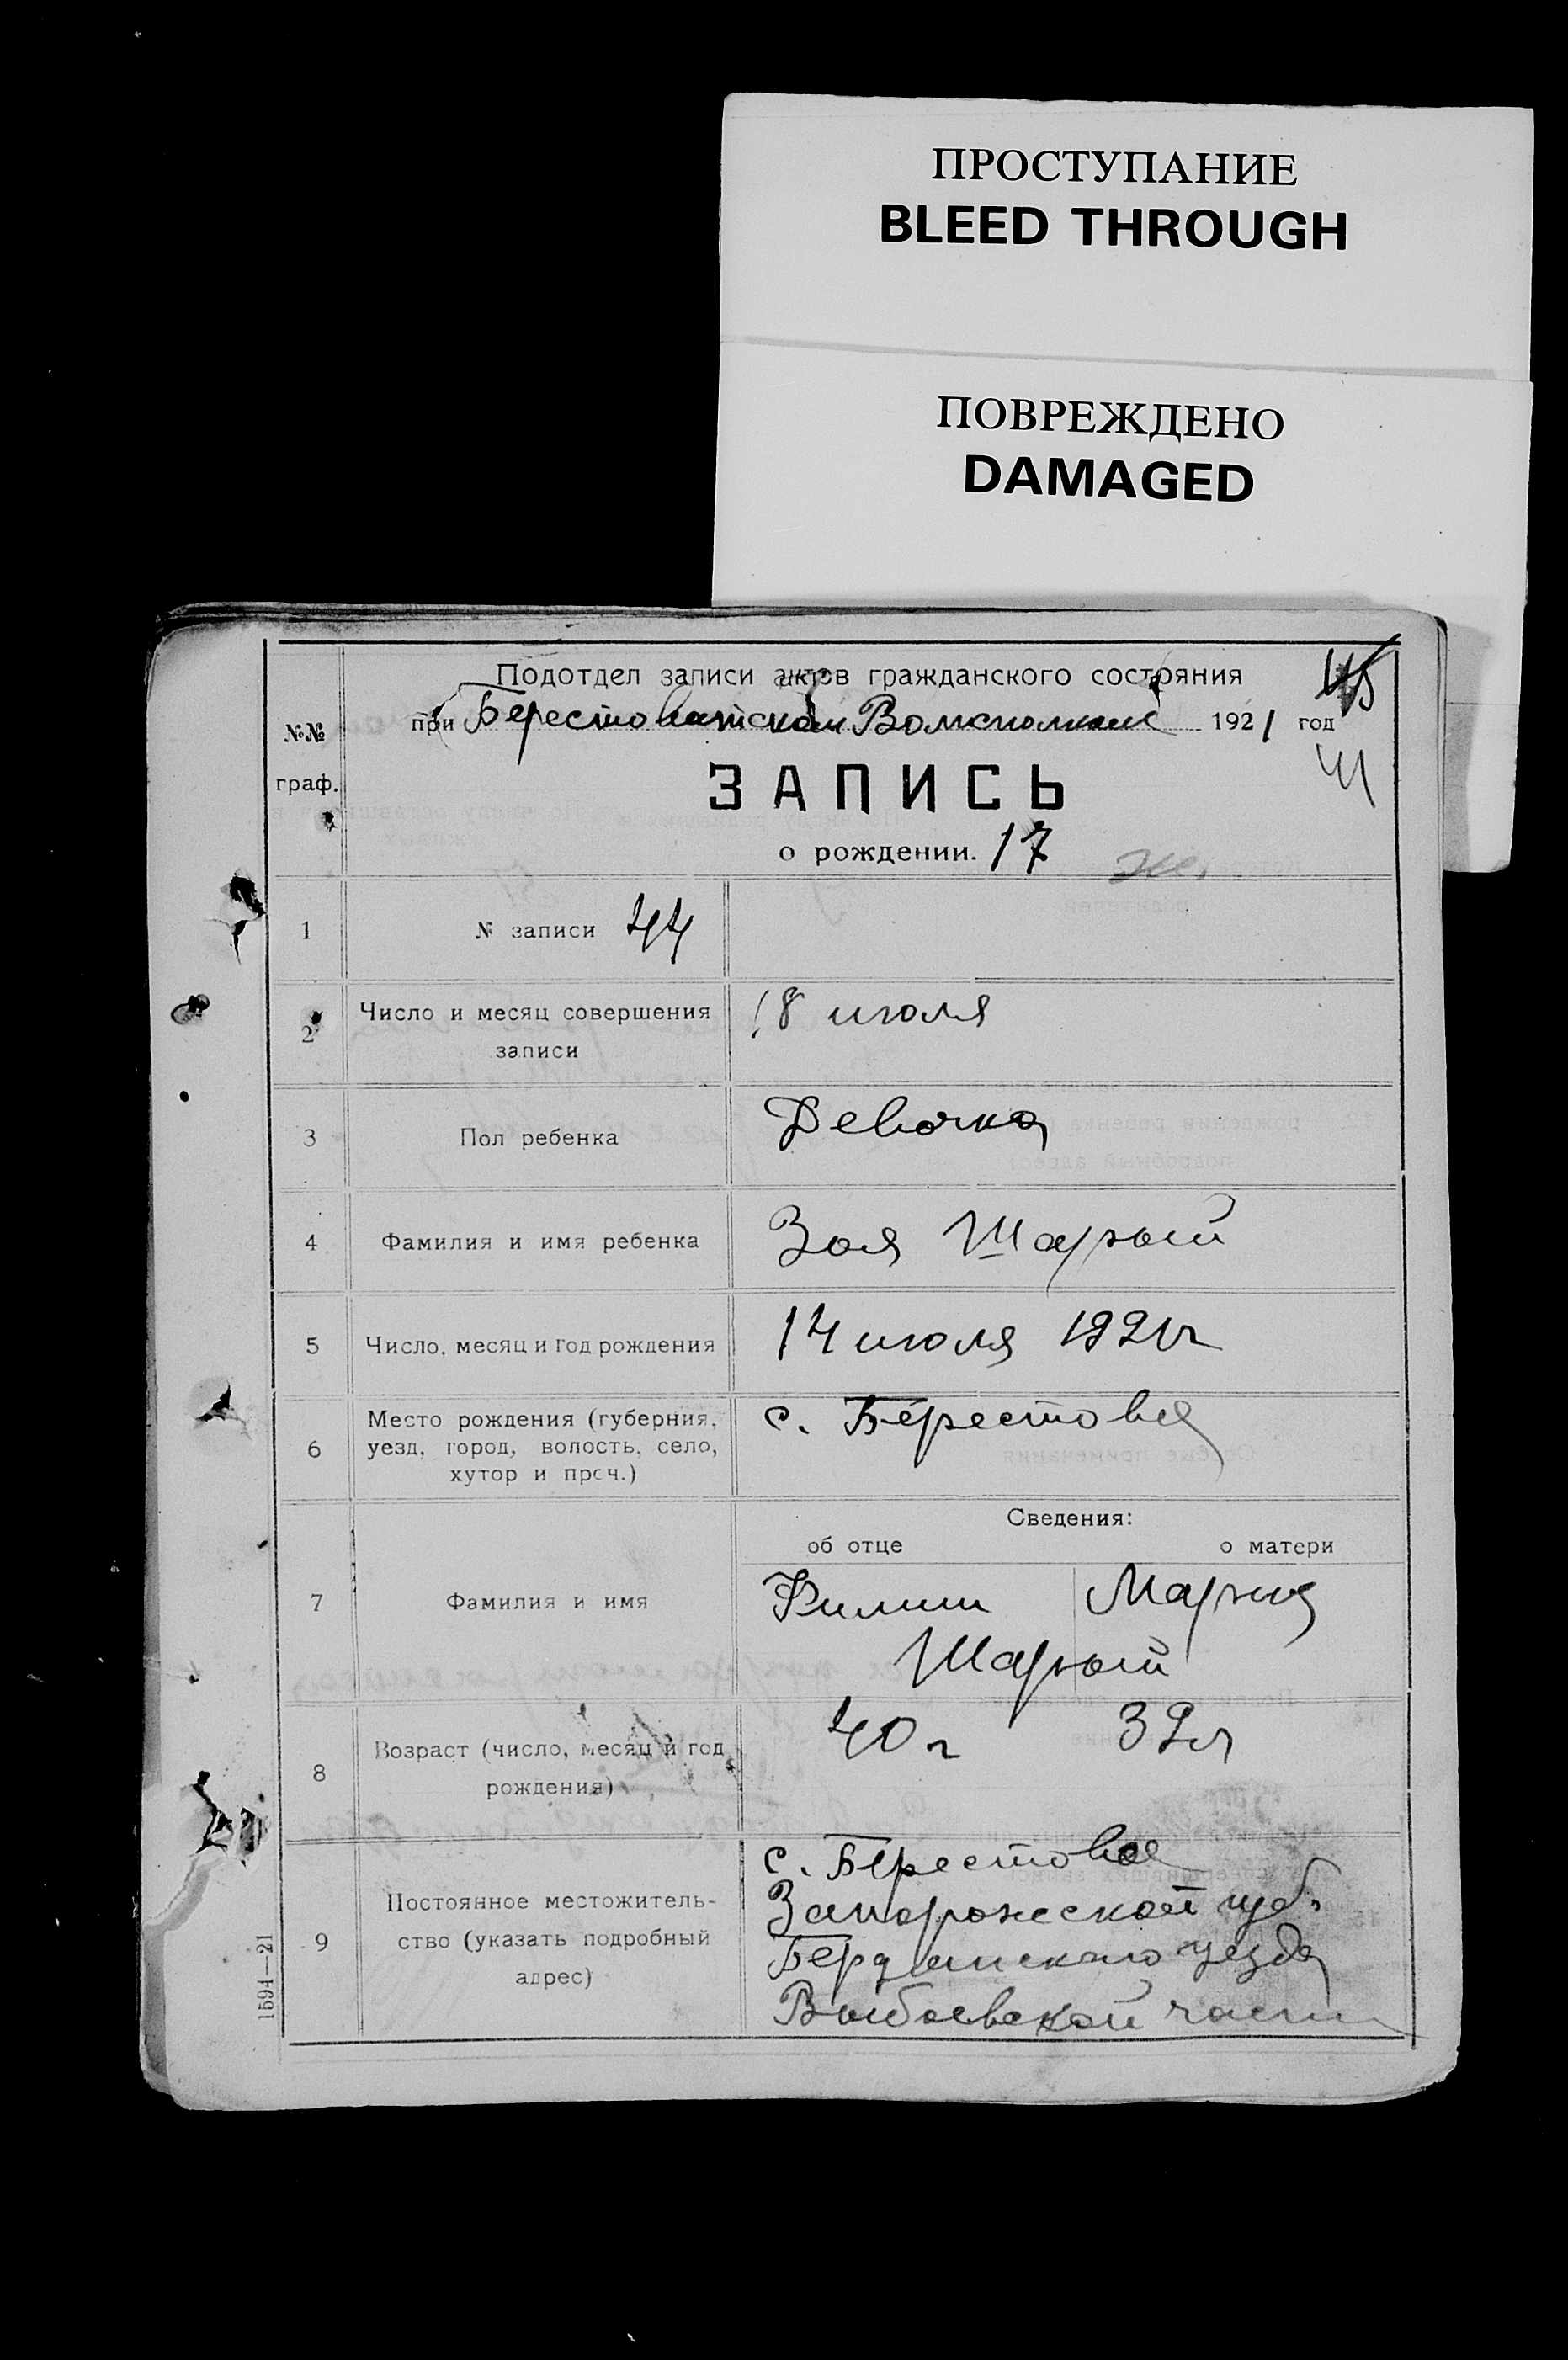 ПРОСТУПАНИЕ
BLEED THROUGH
ПОВРЕЖДЕНО
DAMAGED
Подотдел записи актов гражданского состояния
при Берестоватском Волисполкоме 1921 год
№№
граф.
41
ЗАПИСЬ
о рождении. 17
ж.
1 № записи 44
2 Число и месяц совершения записи 18 июля
3 Пол ребенка Девочка
4 Фамилия и имя ребенка Зоя Шарый
5 Число, месяц и год рождения 14 июля 1921 г
6 Место рождения (губерния, уезд, город, волость, село, хутор и проч.) с. Берестовая
Сведения:
об отце о матери
7 Фамилия и имя Филипп Мария
Шарый
8 Возраст (число, месяц и год рождения) 40 г 32 л
с. Берестовое
Запорожской губ.
9 Постоянное местожитель-
ство (указать подробный
адрес)
Бердянского уезда
части
1594—21